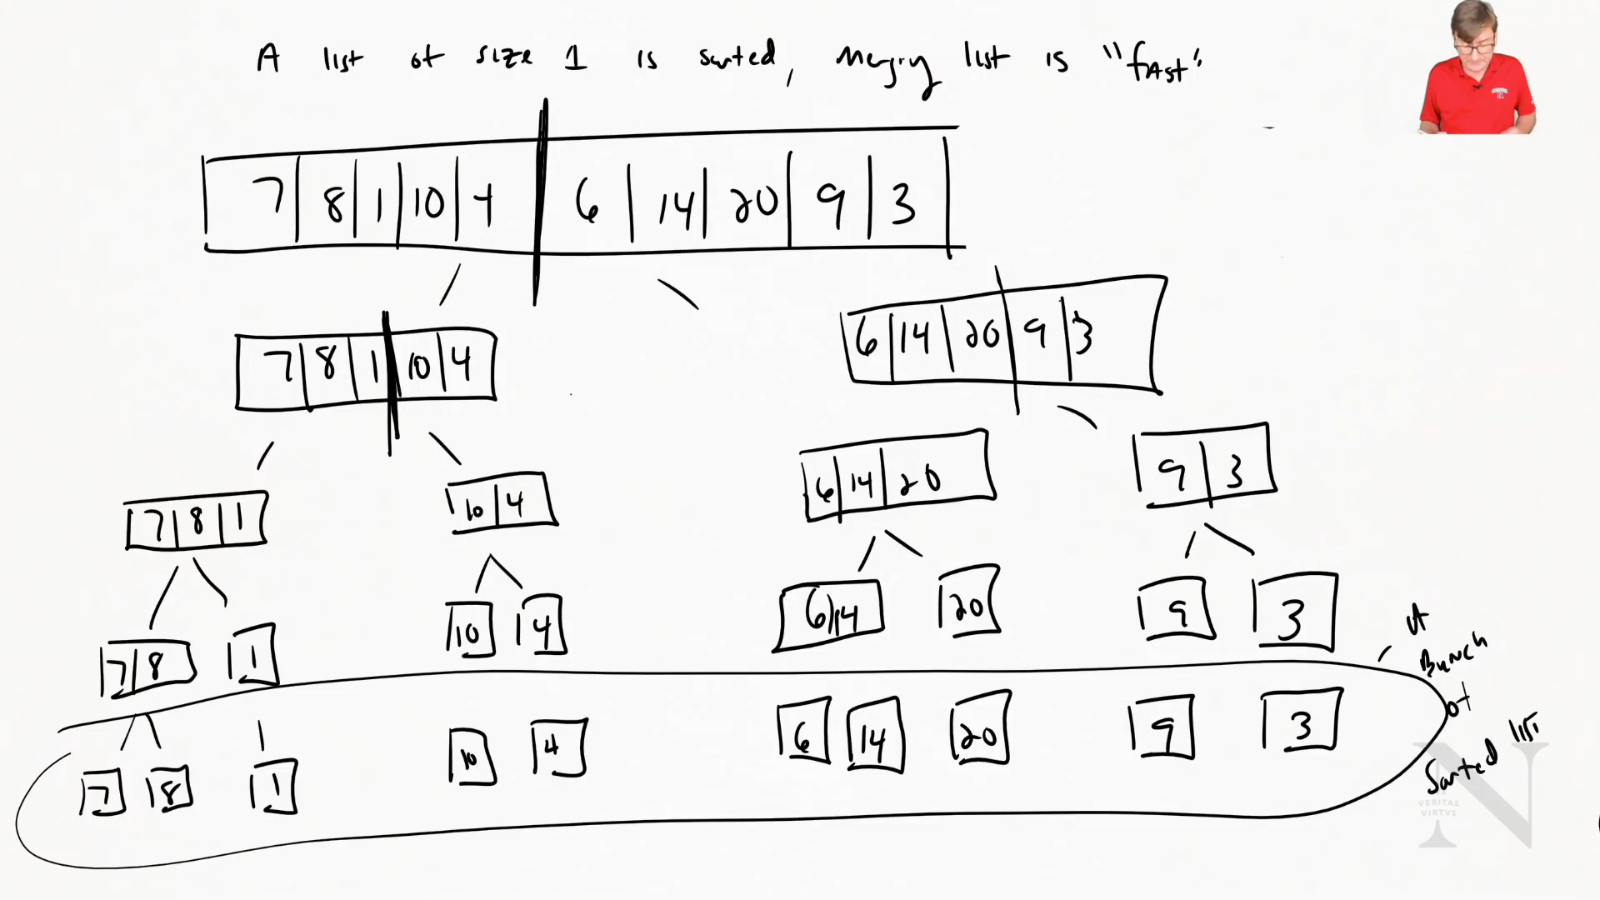 A list of size 1 is sorted, merging list is "fast"
7 8 1 10 4 6 14 20 9 3
7 8 1 10 4
6 14 20 9 3
7 8 1
10 4
6 14 20
9 3
7 8
1
10
4
6 14
20
9
3
7
8
1
10
4
6
14
20
9
3
A
Bunch
of
Sorted list
N
VERITAS
VIRTVS